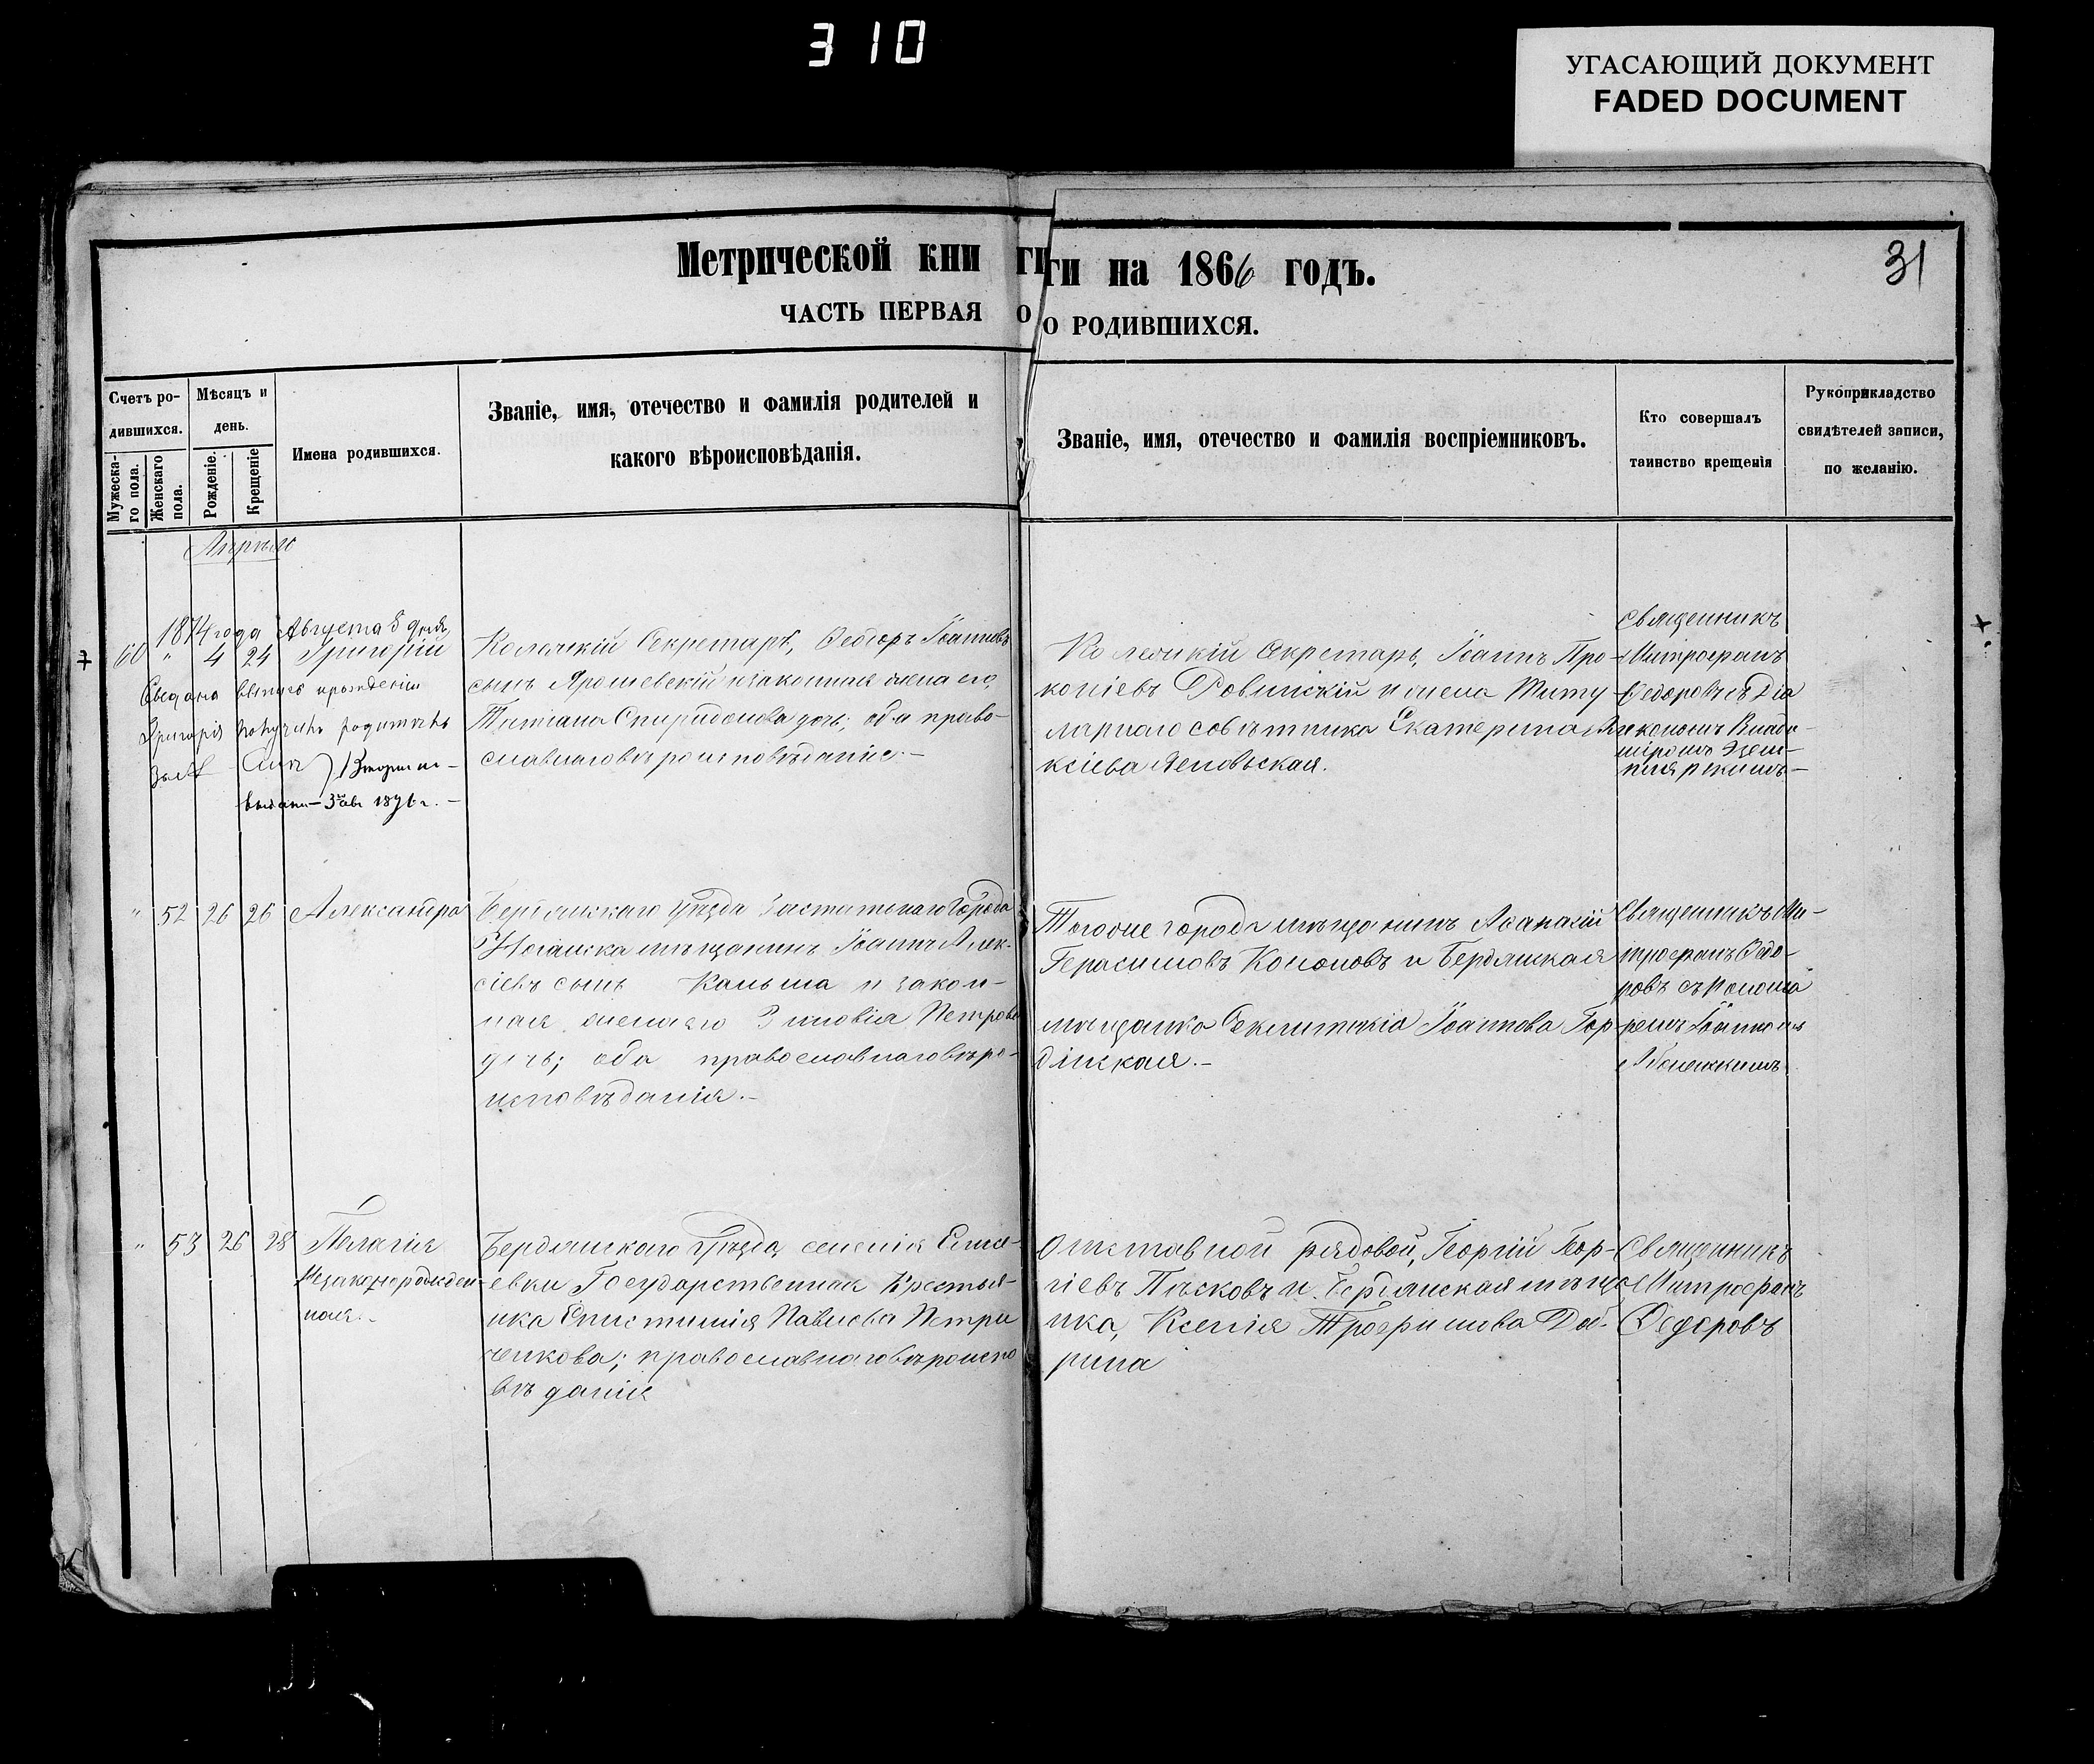 310
УГАСАЮЩИЙ ДОКУМЕНТ
FADED DOCUMENT
Метрической книги на 1866 годъ.
31
ЧАСТЬ ПЕРВАЯ О РОДИВШИХСЯ.
Счетъ ро-
дившихся.
Мужеска-
го пола.
Женскаго
пола.
Мѣсяцъ и
день.
Рожденіе.
Крещеніе
Имена родившихся.
Званіе, имя, отечество и фамилія родителей и
какого вѣроисповѣданія.
Званіе, имя, отечество и фамилія воспріемниковъ.
Кто совершалъ
таинство крещенія
Рукоприкладство
свидѣтелей записи,
по желанію.
Апрѣль
1874 года Августа 8 дня
60 " 4 24 Григорій
Григорія
выдана 3 1876 г.
Коллежскій Секретарь, Ѳеодоръ Іоанновъ
сынъ Ярошевскій и законная жена его,
Татіана Спиридонова дочь; оба право-
славнаго вѣроисповѣданія.-
Коллежскій Секретарь, Іоаннъ Про-
копіевъ Ровинскій и жена Титу-
лярнаго совѣтника Екатерина Але-
ксіева
Священникъ
Митрофанъ
Ѳедоровъ съ Діа
кономъ Влади-
міромъ
" 52 26 26 Александра
Бердянскаго Уѣзда Заштатнаго Города
Ногайска мѣщанинъ Іоаннъ Алек-
сіевъ сынъ и закон-
ная жена его Зиновія Петрова
дочь; оба православнаго вѣро-
исповѣданія.-
Того же города мѣщанинъ Аѳанасій
Герасимовъ Кононовъ и Бердянская
мѣщанка Іоаннова Гор-
дінская.-
Священникъ Ми-
трофанъ Ѳедо-
ровъ съ понома
ремъ Іоанномъ
" 53 26 28 Пелагія
Незаконнорожден-
ная.-
Бердянскаго Уѣзда селенія
евки Государственная Крестья-
нка Епистимія Павлова Петри
ченкова; православнаго вѣроиспо
вѣданія
Отставной рядовой, Георгій Геор-
гіевъ Пѣсковъ и Бердянская мѣща
нка, Ксенія Трофимова
рина
Священникъ
Митрофанъ
Ѳедоровъ